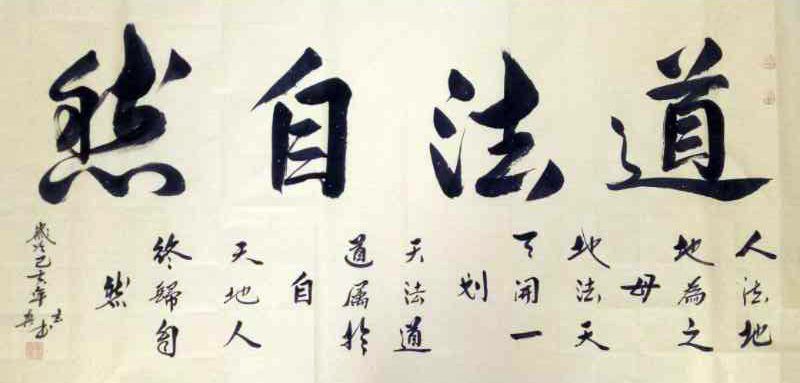 道法自然
人法地
地為之
母
地法天
開一
划
天法道
道属於
自
天地人
終歸自
然
歲次己亥年